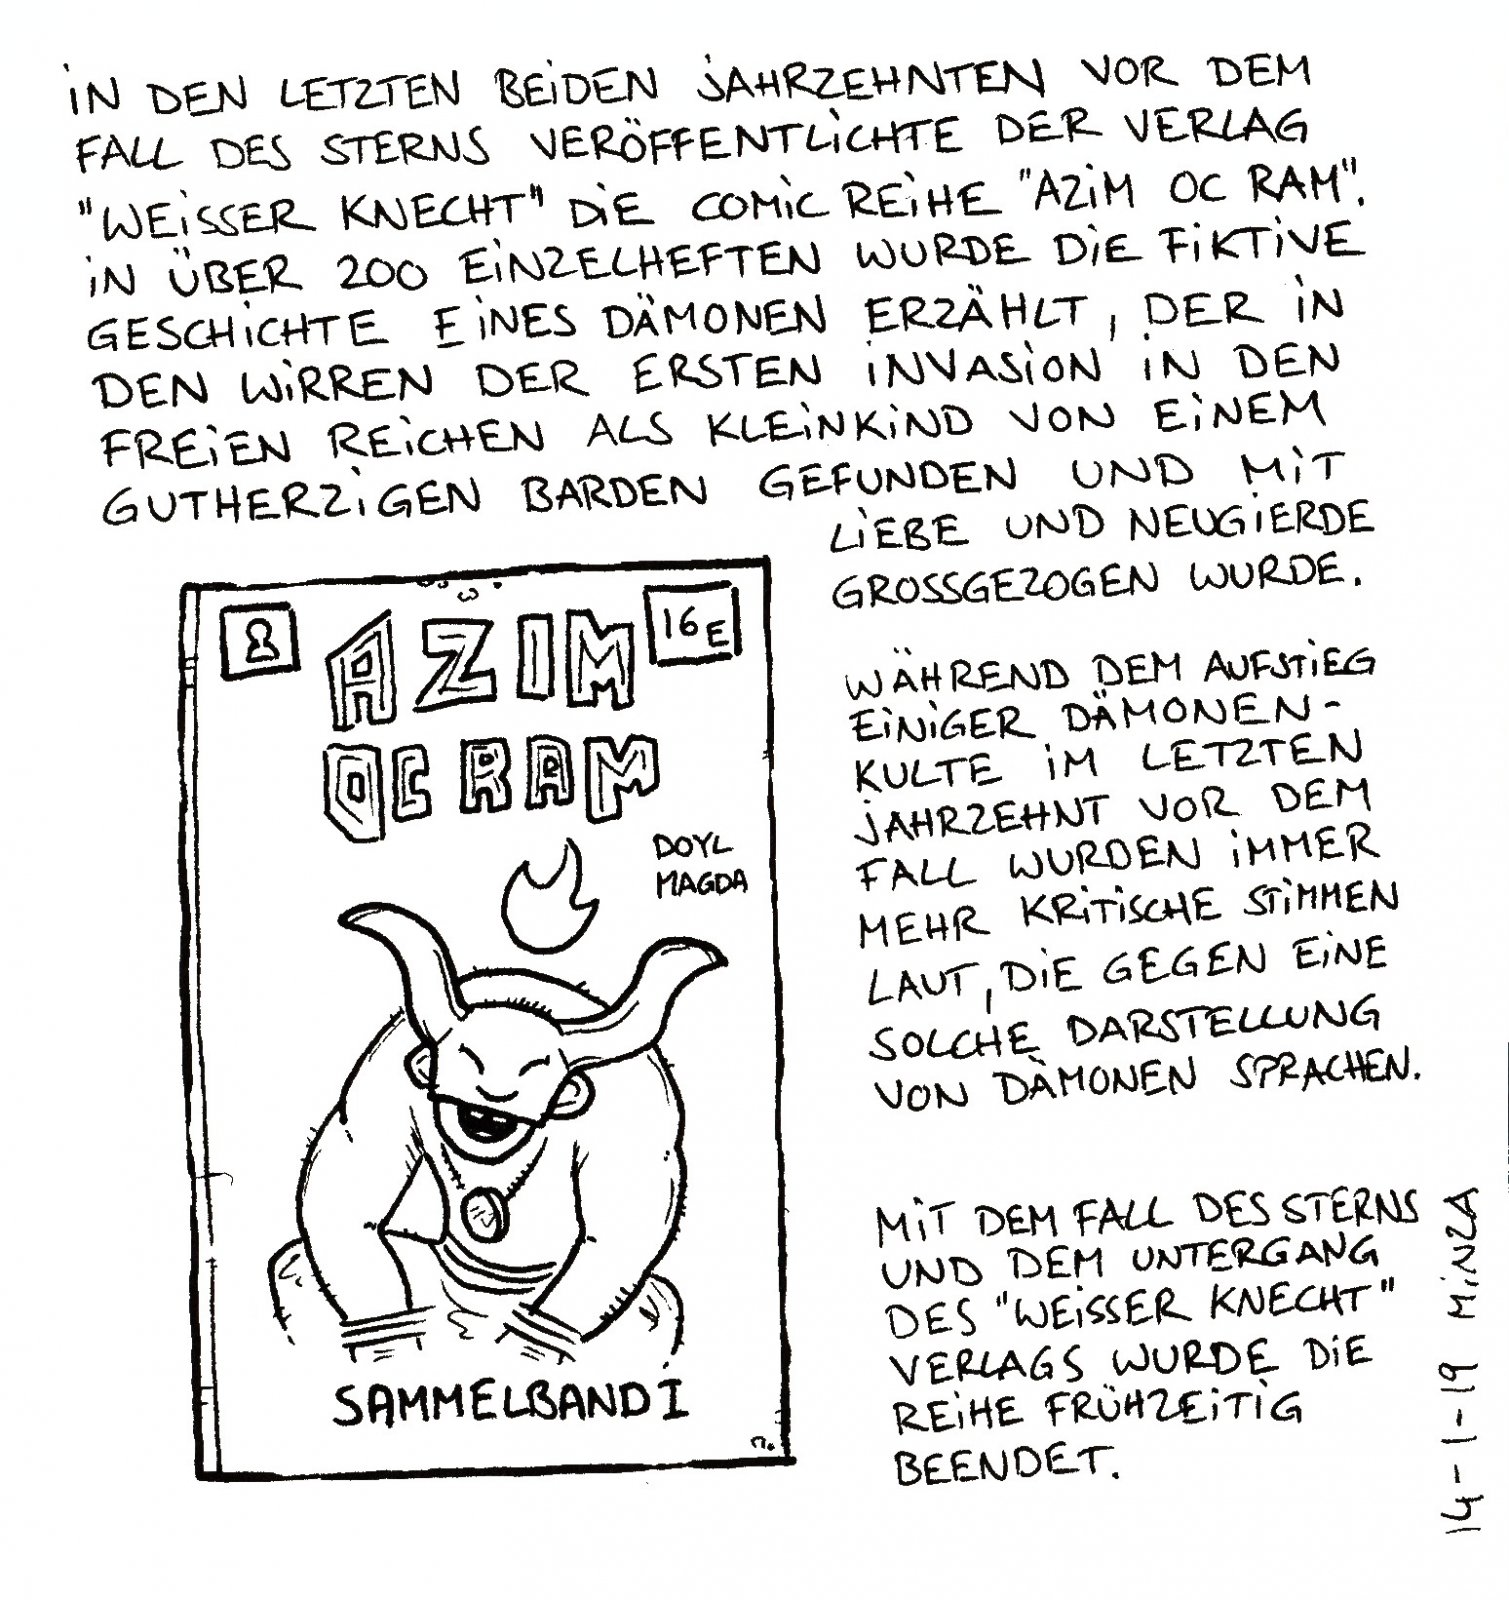 iN DEN LETZTEN BEiDEN JAHRZEHNTEN VOR DEM
FALL DES STERNS VERÖFFENTLiCHTE DER VERLAG
"WEiSSER KNECHT" DiE COMiC REiHE "AZiM OC RAM".
iN ÜBER 200 EiNZELHEFTEN WURDE DiE FiKTiVE
GESCHiCHTE EiNES DÄMONEN ERZÄHLT, DER iN
DEN WiRREN DER ERSTEN iNVASiON iN DEN
FREiEN REiCHEN ALS KLEiNKiND VON EiNEM
GUTHERZiGEN BARDEN GEFUNDEN UND MiT
LiEBE UND NEUGiERDE
GROSSGEZOGEN WURDE.
WÄHREND DEM AUFSTiEG
EiNiGER DÄMONEN-
KULTE iM LETZTEN
JAHRZEHNT VOR DEM
FALL WURDEN iMMER
MEHR KRiTiSCHE STiMMEN
LAUT, DiE GEGEN EiNE
SOLCHE DARSTELLUNG
VON DÄMONEN SPRACHEN.
MiT DEM FALL DES STERNS
UND DEM UNTERGANG
DES "WEiSSER KNECHT"
VERLAGS WURDE DiE
REiHE FRÜHZEiTiG
BEENDET.
16E
AZIM
OC RAM
DOYL
MAGDA
SAMMELBAND I
14-1-19 MiNZA